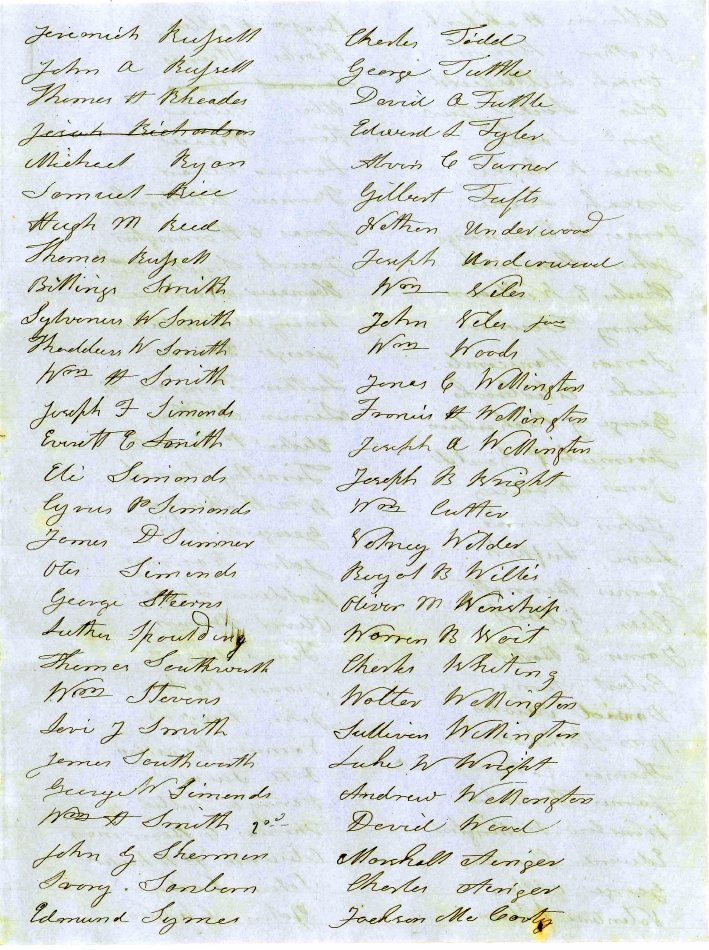 Jeremiah Russell
John A Russell
Thomas H Rhoades
Josiah Richardson
Michael Ryan
Samuel Rice
Hugh M Reed
Thomas Russell
Billings Smith
Sylvanus W Smith
Thaddeus W Smith
Wm H Smith
Joseph F Simonds
Everett E Smith
Eli Simonds
Cyrus P Simonds
James D Sumner
Otis Simonds
George Stearns
Luther Spoulding
Thomas Southworth
Wm Stevens
Levi J Smith
James Southworth
George W Simonds
Wm H Smith 2nd
John G Sherman
Ivory. Sanborn
Edmund Symes
Charles Todd
George Tuttle
David A Tuttle
Edward L Tyler
Alvin C Turner
Gilbert Tufts
Nathan Underwood
Joseph Underwood
Wm Viles
John Viles Jun
Wm Woods
Jonas C Wellington
Francis H Wellington
Joseph A Wellington
Joseph B Wright
Wm Cutter
Volney Wilder
Royal B Willis
Oliver M Winship
Warren B Wait
Charles Whiting
Walter Wellington
Sullivan Wellington
Luke W Wright
Andrew Wellington
David Wood
Marshall
Charles
Jackson Mc Carty